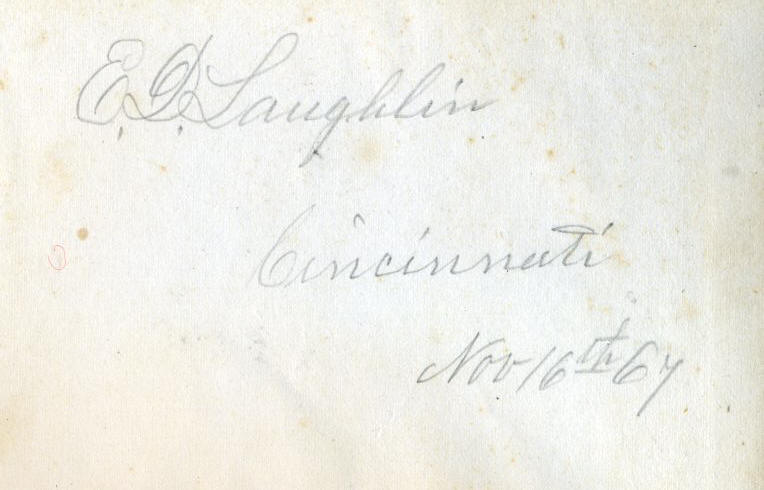 E. D. Laughlin
Cincinnati
Nov 16th 67